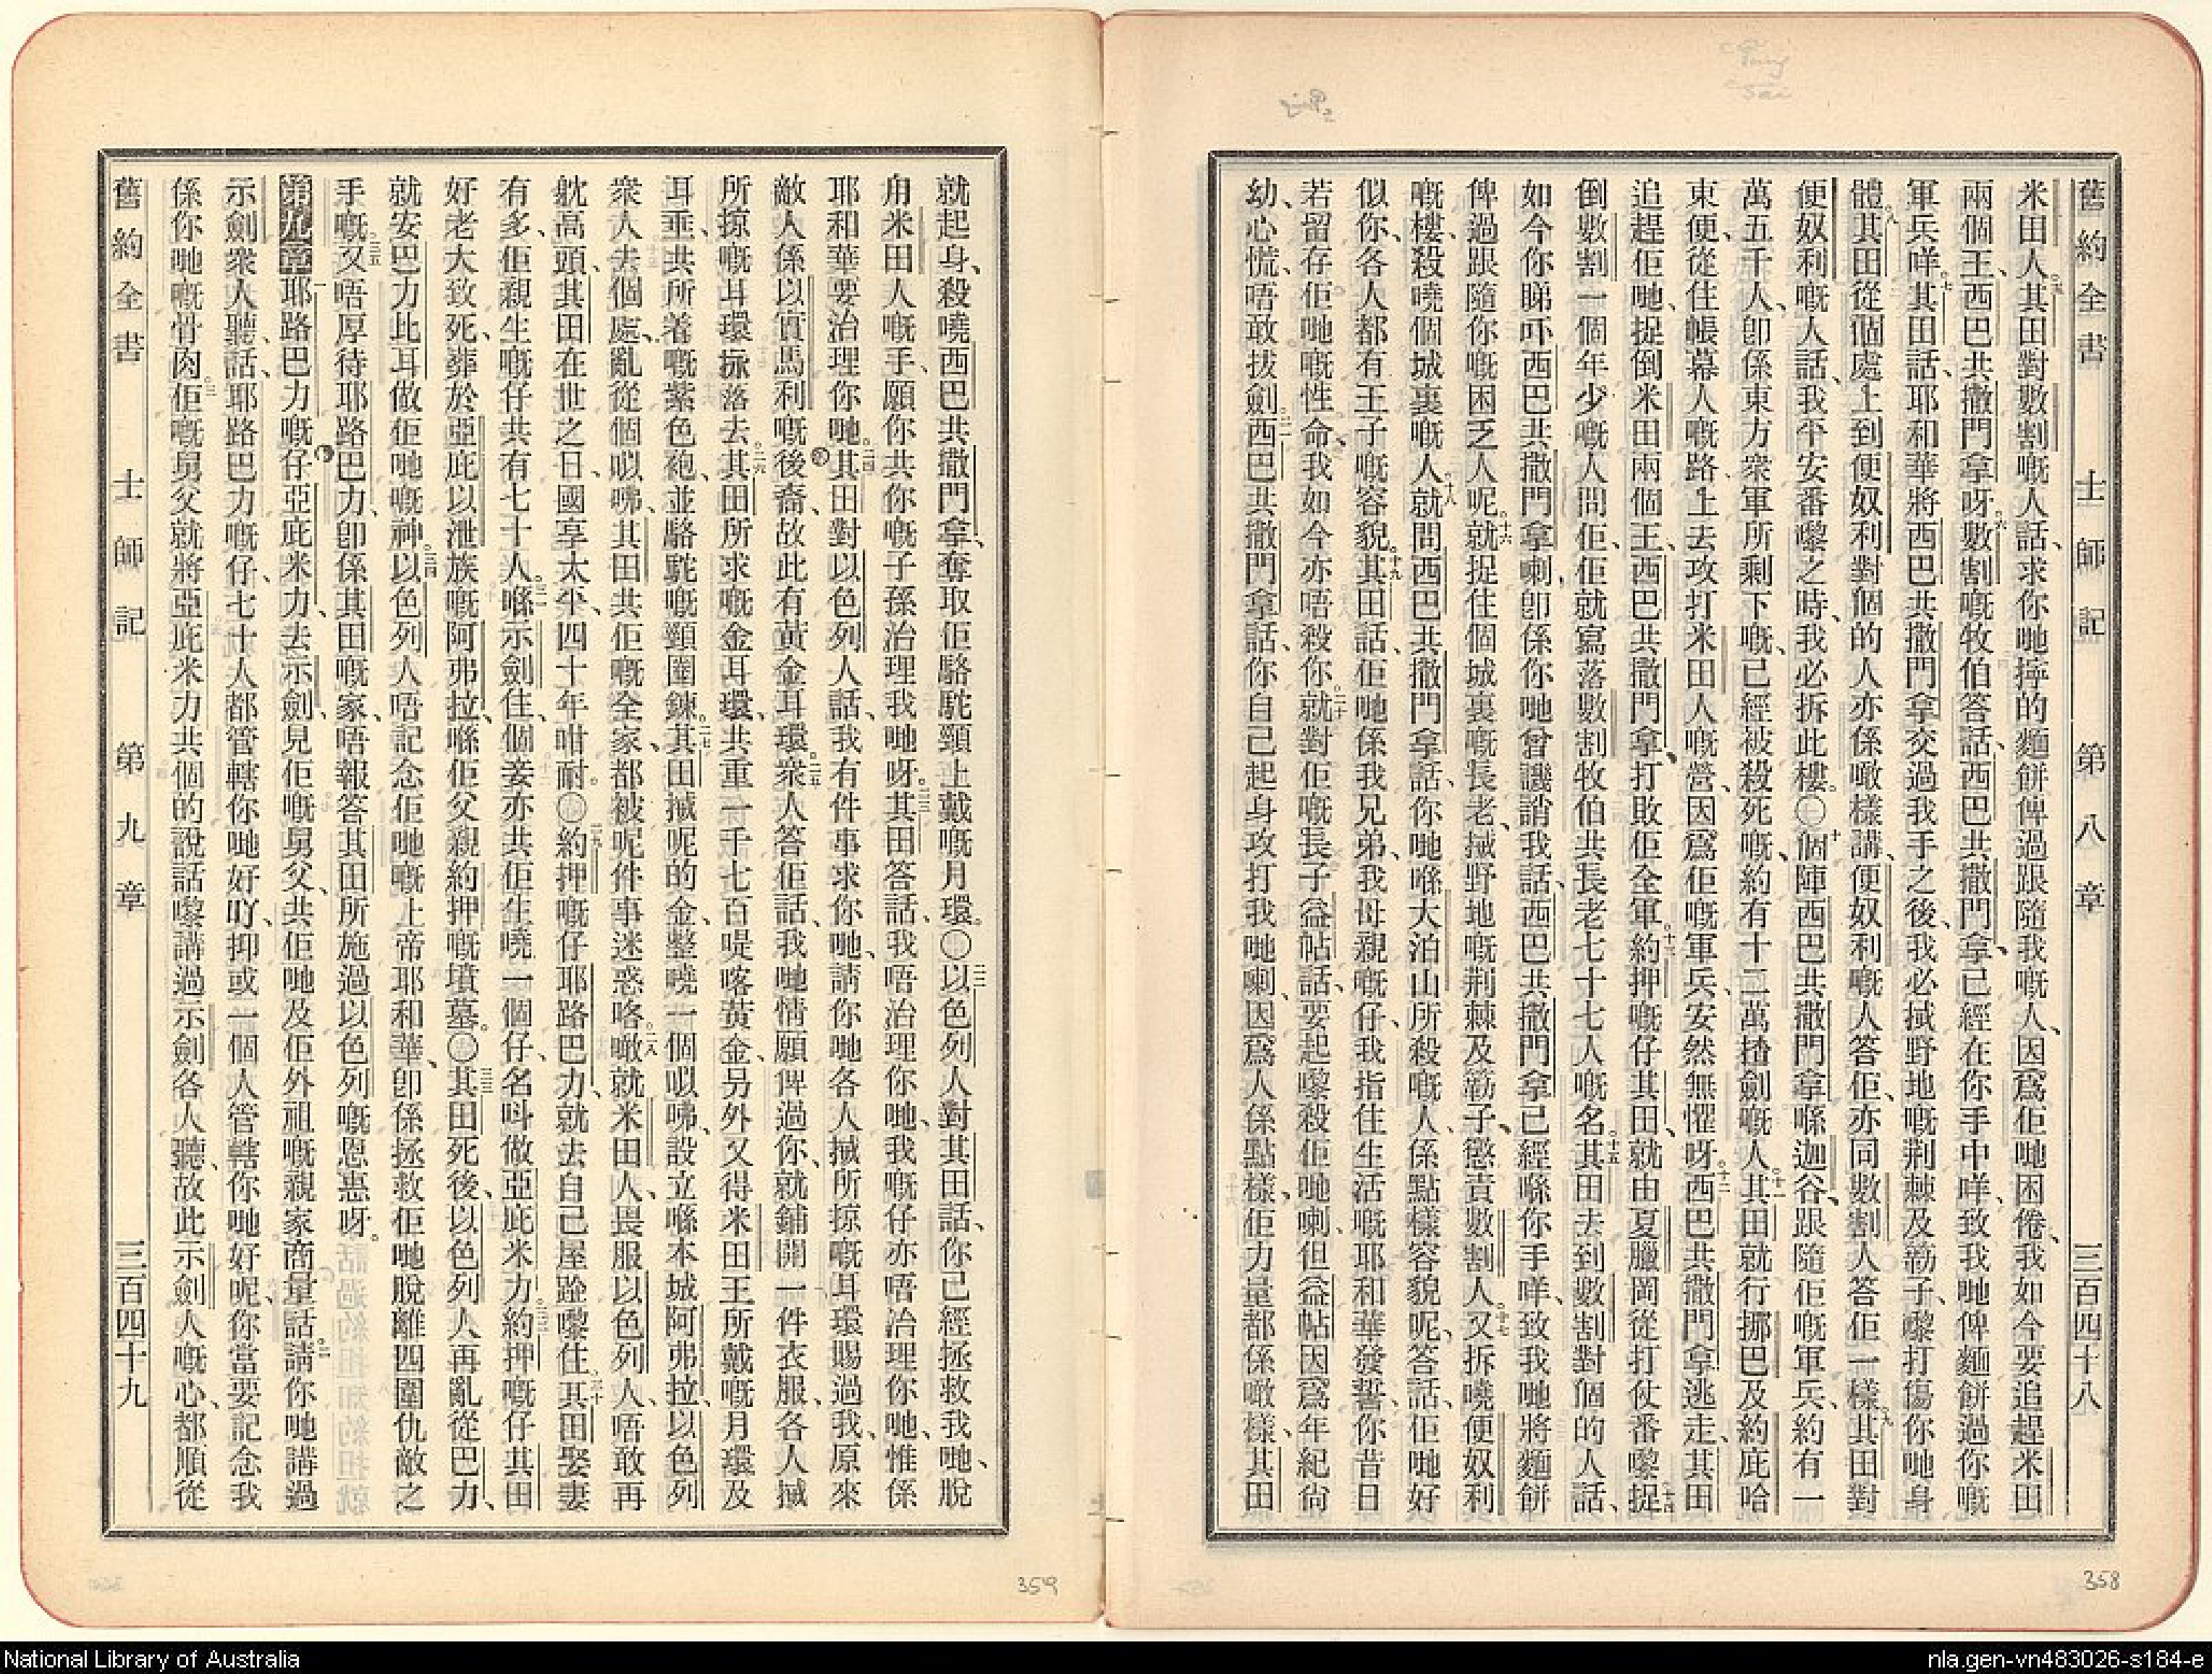 舊約全書 士師記 第八章 三百四十八
米田人、五其田對數割嘅人話、求你哋擰的麵餅俾過跟隨我嘅人、因爲佢哋困倦、我如今要追趕米田
兩個王、西巴共撒門拿呀。六數割嘅牧伯答話、西巴共撒門拿、已經在你手中咩、致我哋俾麵餅過你嘅
軍兵咩。七其田話、耶和華將西巴共撒門拿交過我手之後、我必搣野地嘅荆棘及簕子、嚟打傷你哋身
體。八其田從個處上到便奴利、對個的人亦係噉樣講、便奴利嘅人答佢、亦同數割人答佢一樣。九其田對
便奴利嘅人話、我平安番嚟之時、我必拆此樓。〇十個陣西巴共撒門拿喺迦谷、跟隨佢嘅軍兵、約有一
萬五千人、卽係東方衆軍所剩下嘅、已經被殺死嘅、約有十二萬揸劍嘅人。十一其田就行挪巴及約庇哈
東便、從住帳幕人嘅路上去、攻打米田人嘅營、因爲佢嘅軍兵、安然無懼呀。十二西巴共撒門拿逃走、其田
追趕佢哋、捉倒米田兩個王、西巴共撒門拿、打敗佢全軍。十三約押嘅仔其田、就由夏臘岡從打仗番嚟、十四捉
倒數割一個年少嘅人問佢、佢就寫落數割牧伯共長老七十七人嘅名。十五其田去到數割對個的人話、
如今你睇吓西巴共撒門拿喇、卽係你哋曾譏誚我話、西巴共撒門拿已經喺你手咩、致我哋將麵餅
俾過跟隨你嘅困乏人呢。十六就捉住個城裏嘅長老、搣野地嘅荆棘及簕子、懲責數割人。十七又拆嘵便奴利
嘅樓、殺嘵個城裏嘅人。十八就問西巴共撒門拿話、你哋喺大泊山所殺嘅人、係點樣容貌呢、答話、佢哋好
似你、各人都有王子嘅容貌。十九其田話、佢哋係我兄弟、我母親嘅仔、我指住生活嘅耶和華發誓、你昔日
若留存佢哋嘅性命、我如今亦唔殺你。二十就對佢嘅長子益帖話、要起嚟殺佢哋喇、但益帖因爲年紀尙
幼、心慌、唔敢拔劍。二一西巴共撒門拿話、你自己起身攻打我哋喇、因爲人係點樣、佢力量都係噉樣、其田
358
就起身、殺嘵西巴共撒門拿、奪取佢駱駝頸上戴嘅月環。〇二二以色列人對其田話、你已經拯救我哋、脫
甪米田人嘅手、願你共你嘅子孫治理我哋呀。二三其田答話、我唔治理你哋、我嘅仔亦唔治理你哋、惟係
耶和華要治理你哋。二四其田對以色列人話、我有件事求你哋、請你哋各人搣所掠嘅耳環賜過我、原來
敵人係以實馬利嘅後裔、故此有黃金耳環。二五衆人答佢話、我哋情願俾過你、就鋪開一件衣服、各人搣
所掠嘅耳環掁落去。二六其田所求嘅金耳環、共重一千七百㖷喀黃金、另外又得米田王所戴嘅月環及
耳垂、共所着嘅紫色袍、並駱駝嘅頸圈鍊。二七其田搣呢的金、整嘵一個㕽咈、設立喺本城阿弗拉、以色列
衆人去個處、亂從個㕽咈、其田共佢嘅全家、都被呢件事迷惑咯。二八噉就米田人、畏服以色列人、唔敢再
躭高頭、其田在世之日、國享太平、四十年咁耐。〇二九約押嘅仔耶路巴力、就去自己屋跧嚟住、三十其田娶妻
有多、佢親生嘅仔共有七十人。三一喺示劍住、個妾亦共佢生嘵一個仔、名呌做亞庇米力。三二約押嘅仔其田
好老大致死、葬於亞庇以泄族嘅阿弗拉、喺佢父親約押嘅墳墓。〇三三其田死後、以色列人再亂從巴力、
就安巴力比耳做佢哋嘅神。三四以色列人唔記念佢哋嘅上帝耶和華、卽係拯救佢哋脫離四圍仇敵之
手嘅。三五又唔厚待耶路巴力、卽係其田嘅家、唔報答其田所施過以色列嘅恩惠呀。
第九章 一耶路巴力嘅仔亞庇米力、去示劍、見佢嘅舅父、共佢哋及佢外祖嘅親家商量話、二請你哋講過
示劍衆人聽話、耶路巴力嘅仔、七十人都管轄你哋好吖、抑或一個人管轄你哋好呢、你當要記念我
係你哋嘅骨肉。三佢嘅舅父就將亞庇米力共個的說話嚟講過示劍各人聽、故此示劍人嘅心、都順從
舊約全書 士師記 第九章 三百四十九
359
National Library of Australia
nla.gen-vn483026-s184-e